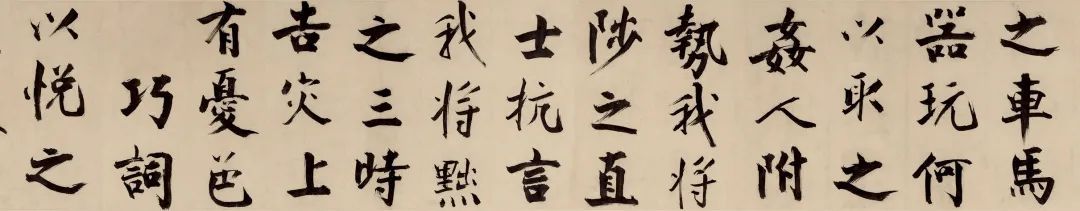 之車馬
器玩何
以取之
姦人附
勢我将
陟之直
士抗言
我将黜
之三時
告灾上
有憂色
巧詞
以悦之